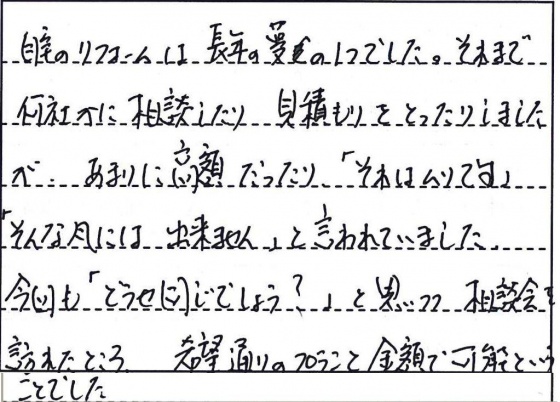 自宅のリフォームは 長年の夢の1つでした。それまで
何社かに 相談したり 見積もりをとったりしました
が、あまりに高額だったり、「それはムリです」
「そんな風には 出来ません」と言われていました。
今回も「どうせ同じでしょう?」と思いつつ 相談会を
訪れたところ 希望通りのプランと金額で可能という
ことでした